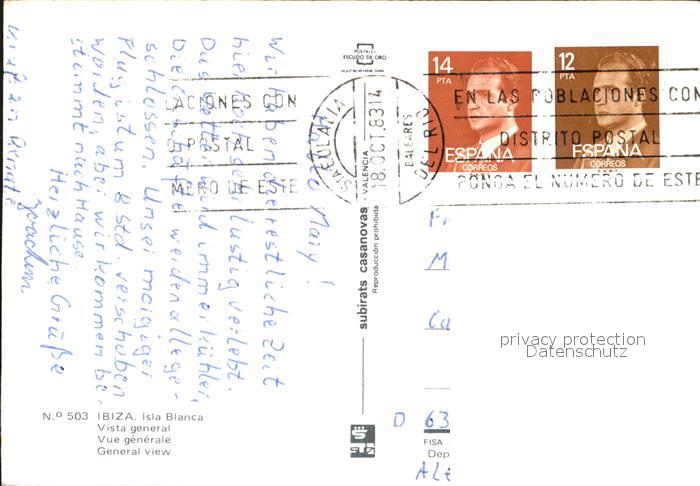 Hallo Maiy!
Wir haben die restliche Zeit
hier noch ger lustig verlebt.
Das Wetter wird immer kühler,
Die Geschäfte werden alle ge-
schlossen. Unser morgiger
Flug ist um 8 Std. verschoben
worden, aber wir kommen be-
stimmt nach Hause.
Herzliche Grüße
Joachim
POSTALES
ESCUDO DE ORO
14
PTA
ESPAÑA
CORREOS
12
PTA
ESPAÑA
CORREOS
LACIONES CON
O POSTAL
MERO DE ESTE
STA EULALIA
DEL RIO
18.OCT.83 14
BALEARES
EN LAS POBLACIONES CON
DISTRITO POSTAL
PONGA EL NUMERO DE ESTE
subirats casanovas VALENCIA
Reproducción prohibida
Fr
M
Ca
D 63
FISA -
Dep
ALE
privacy protection
Datenschutz
N.º 503 IBIZA. Isla Blanca
Vista general
Vue générale
General view